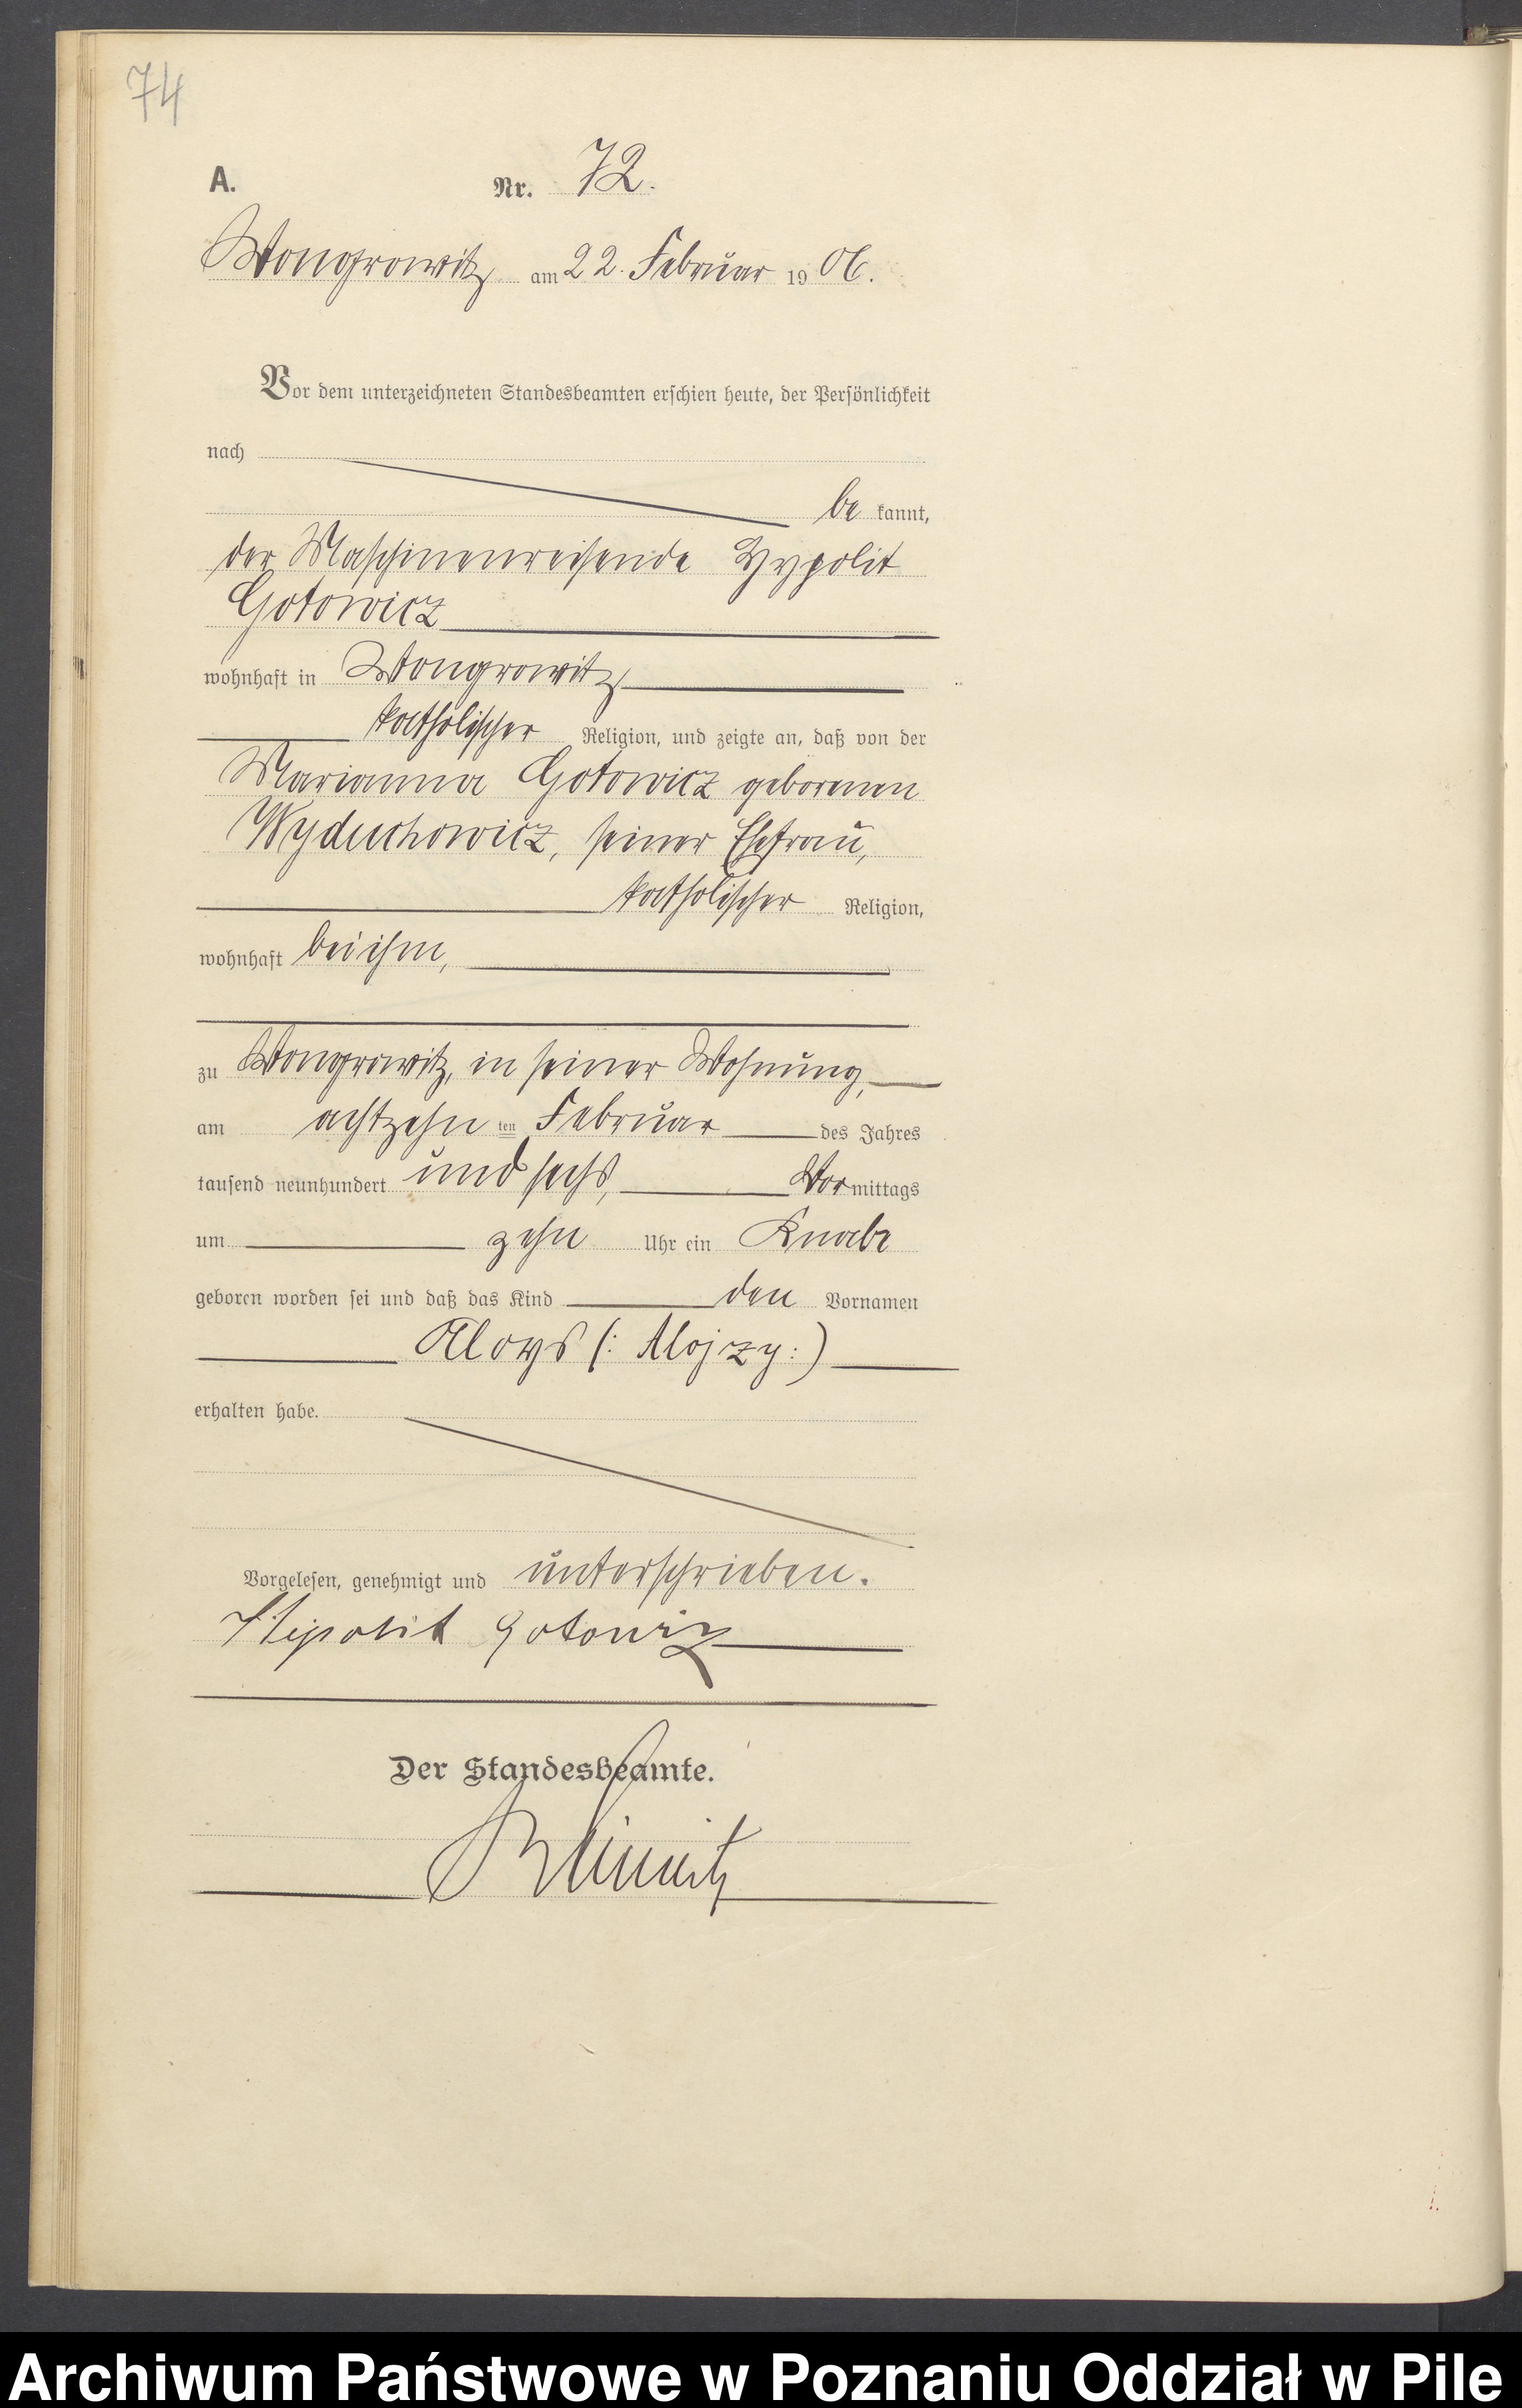 74
A. Nr. 72.
Wongrowitz am 22. Februar 1906.
Vor dem unterzeichneten Standesbeamten erschien heute, der Persönlichkeit
nach
be kannt,
der Maschinenreisende Hypolit
Gotowicz
wohnhaft in Wongrowitz
katholischer Religion, und zeigte an, daß von der
Marianna Gotowicz geborenen
Wyduchowicz, seiner Ehefrau,
katholischer Religion,
wohnhaft bei ihm,
zu Wongrowitz, in seiner Wohnung,
am achtzehn ten Februar des Jahres
tausend neunhundert und sechs, Vormittags
um zehn Uhr ein Knabe
geboren worden sei und daß das Kind den Vornamen
Aloys (: Alojzy :)
erhalten habe.
Vorgelesen, genehmigt und unterschrieben.
Hipolit Gotowicz
Der Standesbeamte.
Archiwum Państwowe w Poznaniu Oddział w Pile